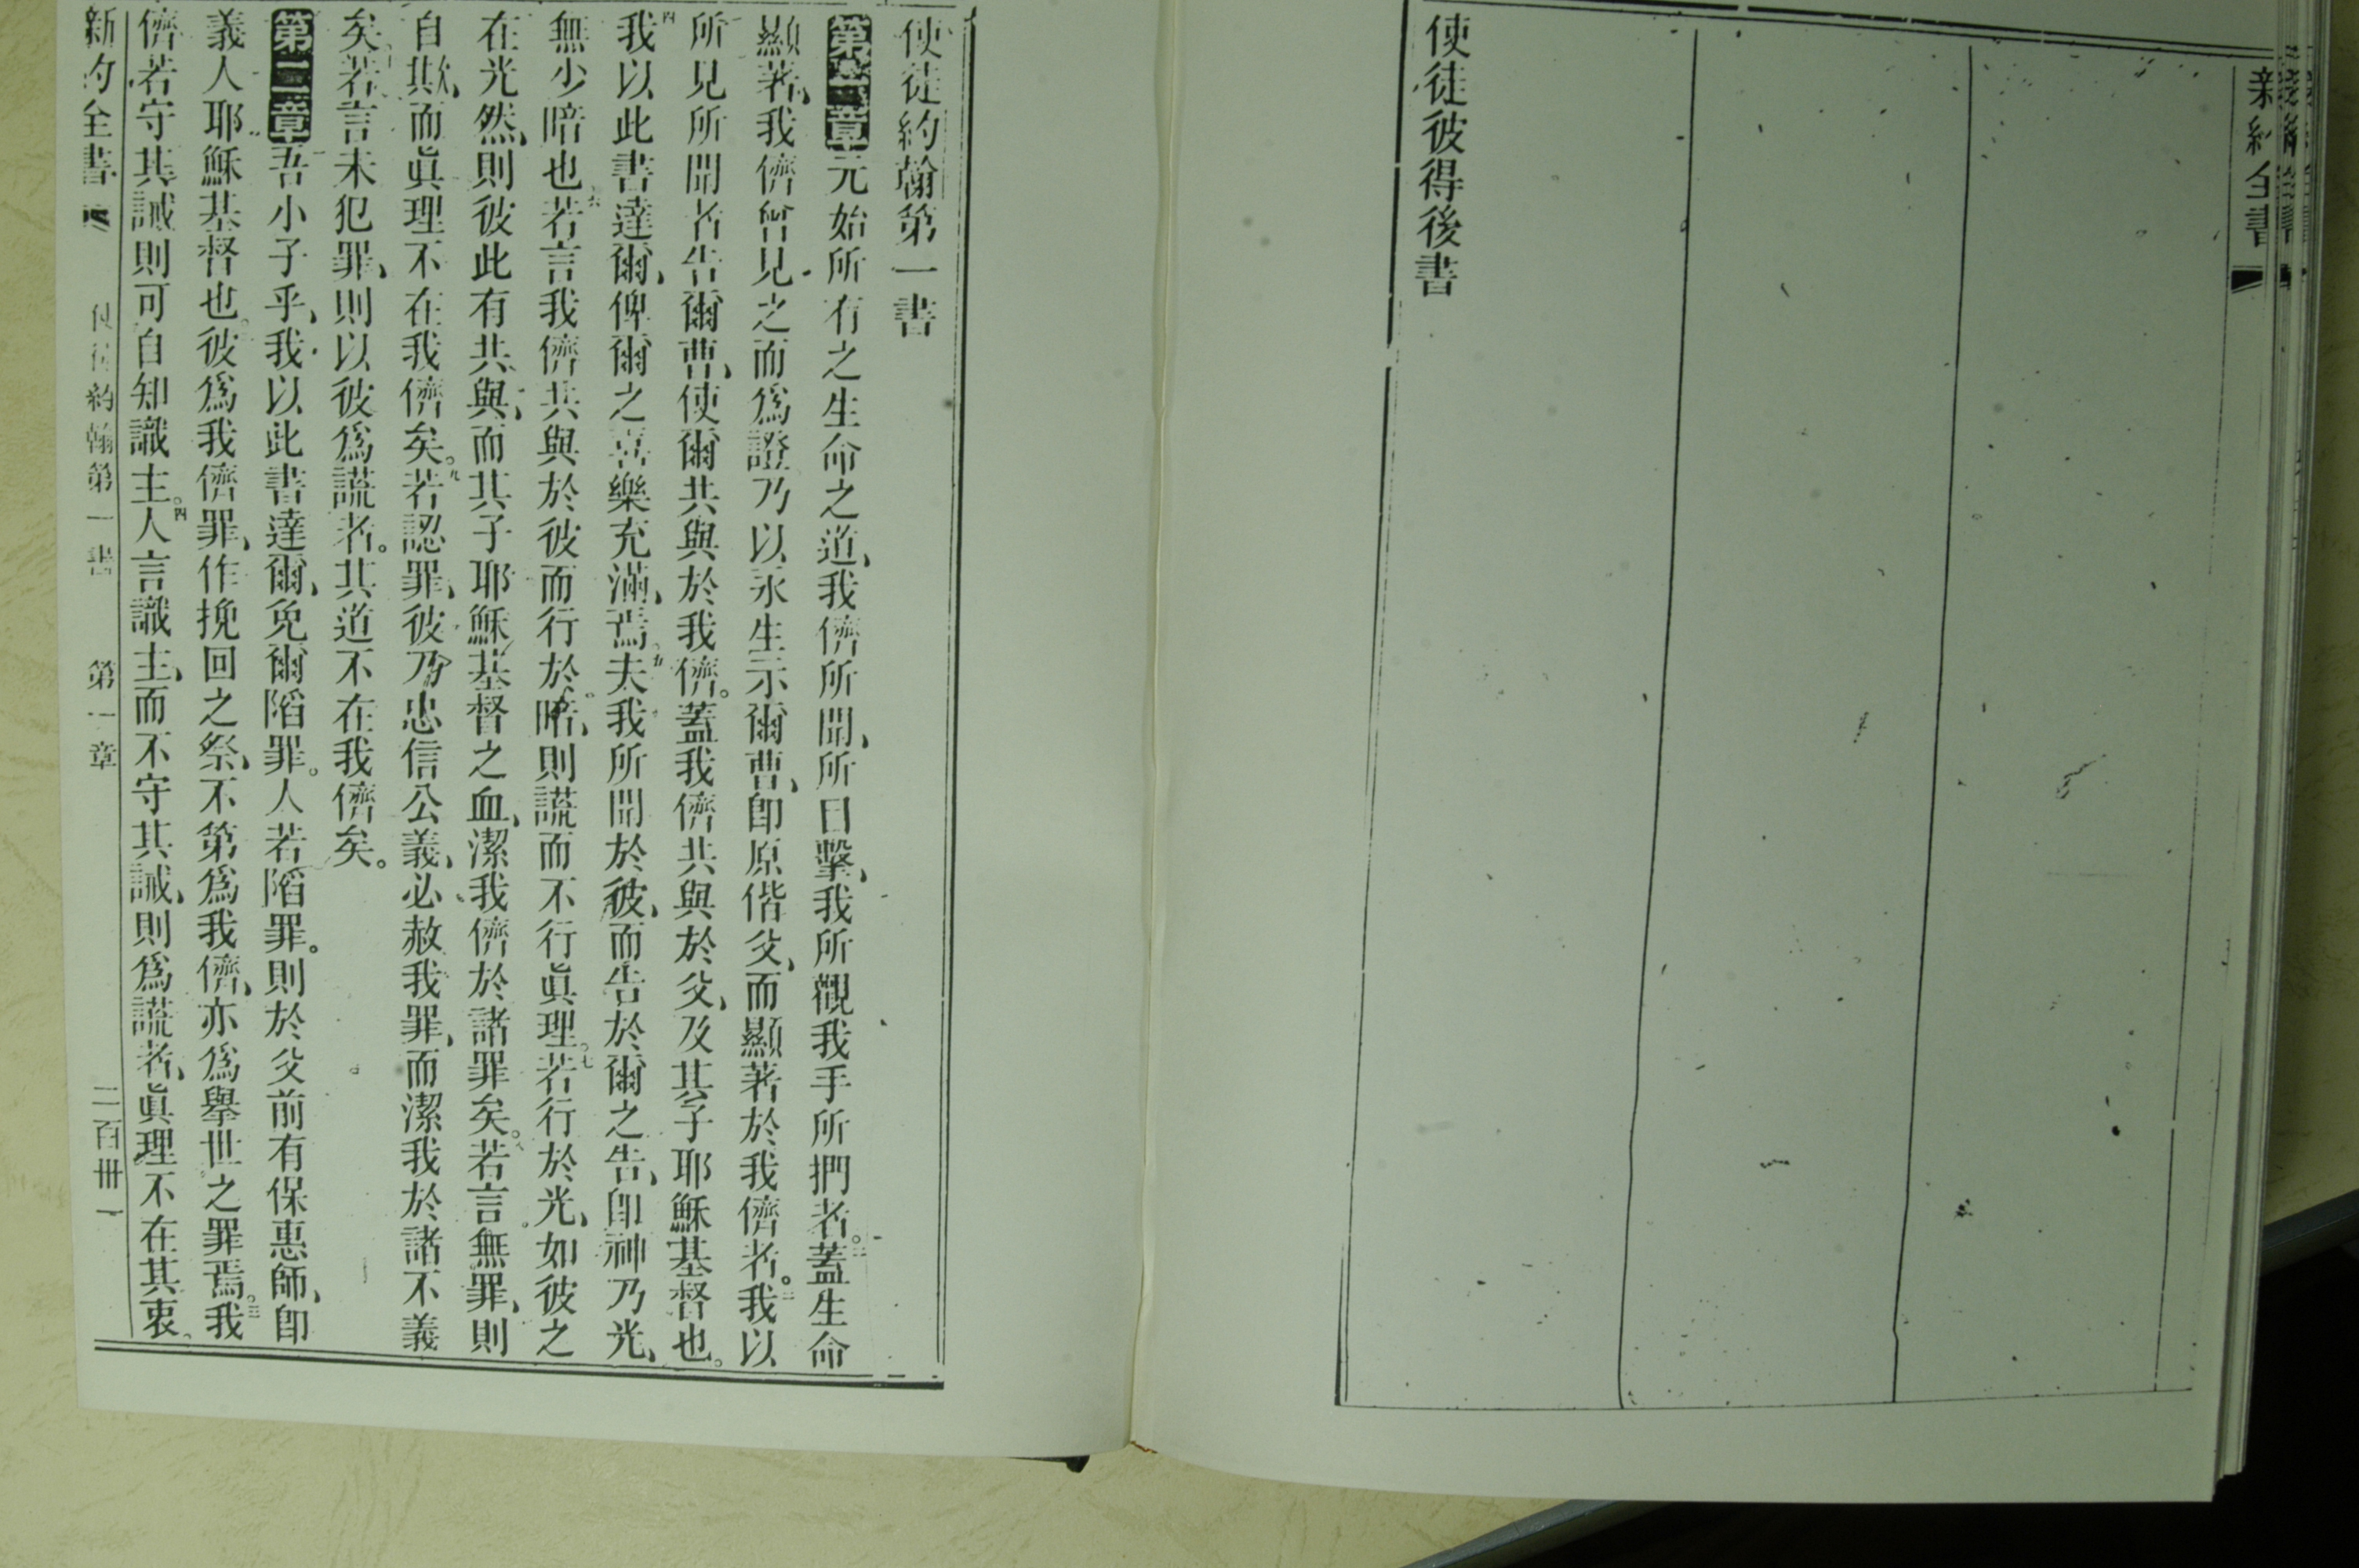 新約全書
使徒彼得後書
使徒約翰第一書
第一章元始所有之生命之道、我儕所聞、所目擊、我所觀我手所捫者。二蓋生命
顯著、我儕曾見之而爲證乃以永生示爾曹、卽原偕父、而顯著於我儕者。三我以
所見所聞者告爾曹、使爾儕共與於我儕。蓋我儕共與於父、及其子耶穌基督也。
四我以此書達爾、俾爾之喜樂充滿焉。五夫我所聞於彼、而告於爾之告、卽神乃光、
無少暗也。六若言我儕共與於彼而行於暗、則謊而不行眞理。七若行於光、如彼之
在光然、則彼此有共與、而其子耶穌基督之血、潔我儕於諸罪矣。八若言無罪、則
自欺、而眞理不在我儕矣。九若認罪、彼乃忠信公義、必赦我罪、而潔我於諸不義
矣。十若言未犯罪、則以彼爲謊者。其道不在我儕矣。
第二章吾小子乎、我以此書達爾、免爾陷罪。人若陷罪。則於父前有保惠師、卽
義人耶穌基督也。二彼爲我儕罪、作挽回之祭、不第爲我儕、亦爲舉世之罪焉。三我
儕若守其誡則可自知識主。四人言識主、而不守其誡、則爲謊者、眞理不在其衷。
新約全書
使徒約翰第一書
第一章
二百卌一